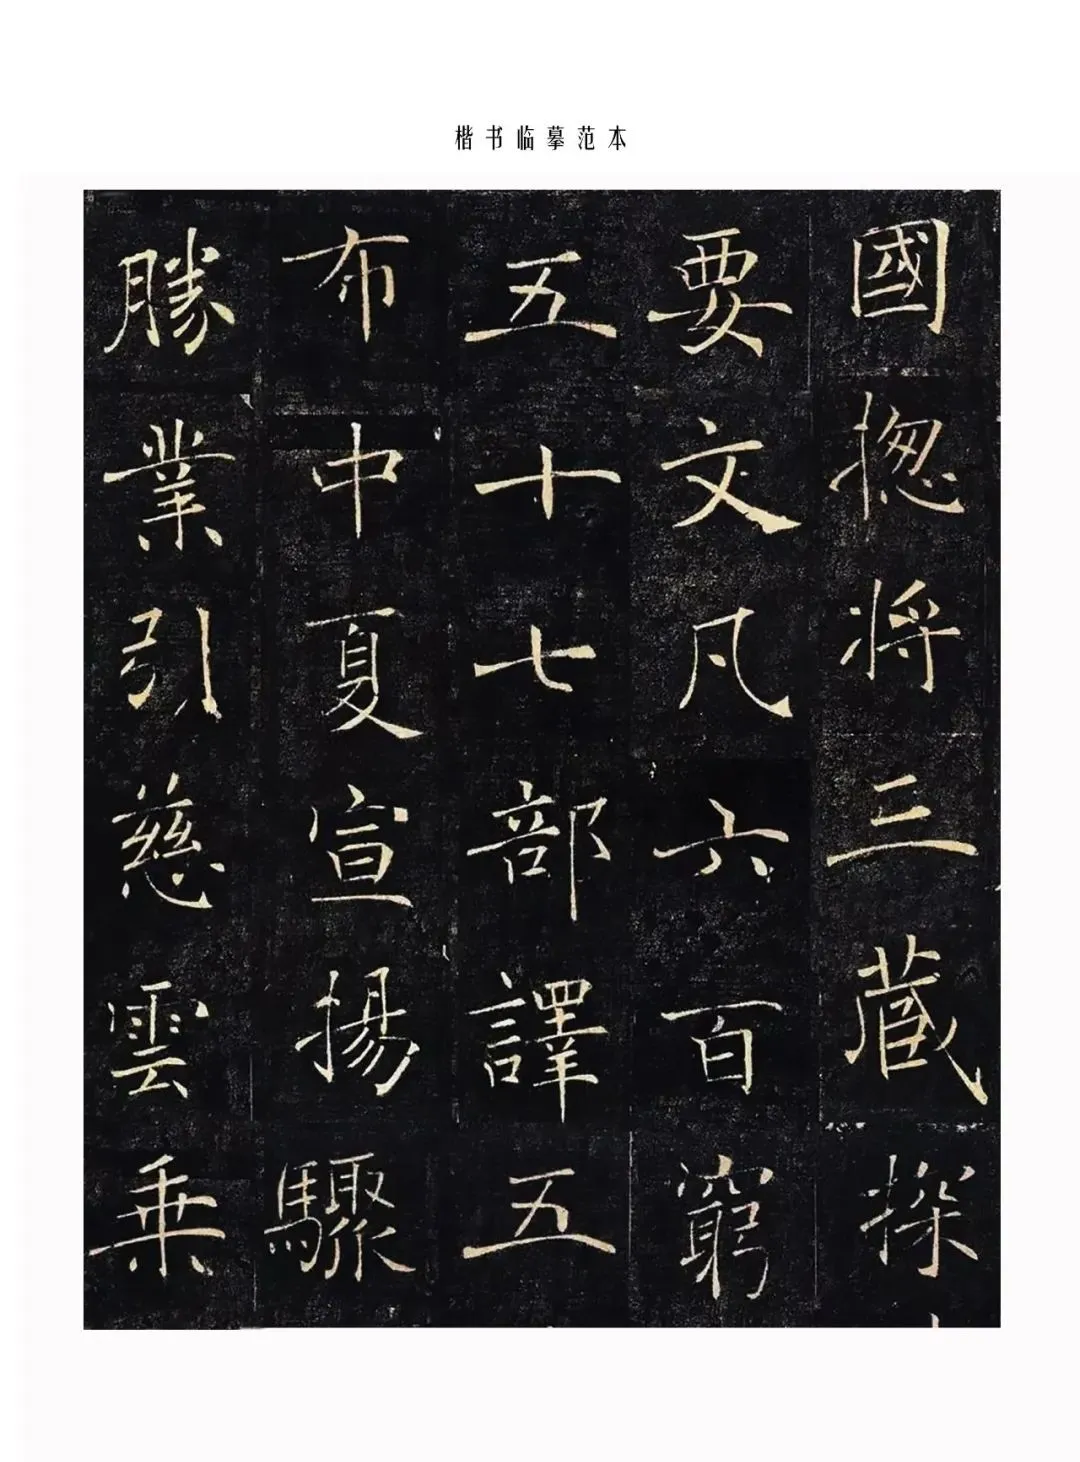 楷书临摹范本
國揔将三蔵探
要文凡六百窮
五十七部譯五
布中夏宣揚驟
勝業引慈雲乗